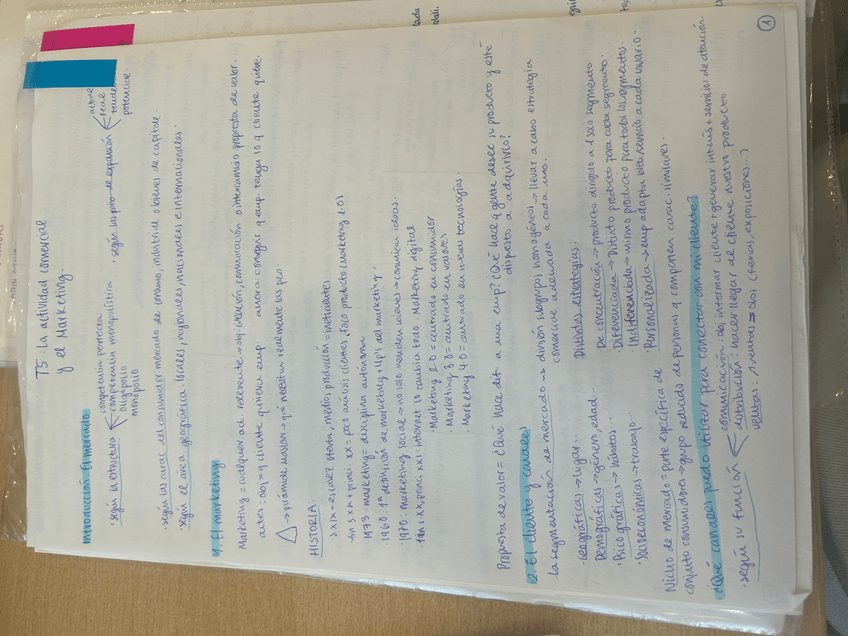 T5: La actividad comercial
y el Marketing.
Introducción: El mercado
· según la estructura
competencia perfecta
competencia monopolística
oligopolio
monopolio
· según las posib. de expansión
actual
real
potencial.
· según la carac. del consumidor: mercado de consumo, industrial o bienes de capital.
· según el área geográfica: locales, regionales, nacionales e internacionales.
1. El marketing
Marketing = cualquier act. referente → comunicación o intercambio propuesta de valor.
antes: obj = q cliente quisiera emp ahora conseguir q emp. tenga lo q cliente quiere.
→ pirámide maslow → q necesitan realmente las pers.
HISTORIA:
S XIX = escasez oferta, medios producción = limitados
fin S XIX + princ. XX = poco análisis clientes, foco producto (Marketing 1.0)
· 1960: 1ª definición de marketing + 4p's del marketing.
· 1970: marketing social → no solo venden bienes → comunicar ideas.
fin XX, princ XXI: internet lo cambia todo. Marketing digital
· Marketing 2.0 = centrado en consumidor
· Marketing 3.0 = centrado en valores
· Marketing 4.0 = centrado en nuevas tecnologías.
Propuesta de valor = ¿Qué hace dif. a una emp? ¿Qué hace q gente desee su producto y esté
dispuesto a adquirirlo?
2. El cliente y canales
La segmentación de mercado → división subgrupos homogéneos → llevar a cabo estrategia
comercial adecuada a cada uno.
· Geográficas → lugar...
Demográficas → género, edad...
· Psicográficas → hábitos...
· Socioeconómicas → trabajo...
Distintas estrategias:
De concentración → producto dirigido a 1 solo segmento
· Diferenciada → Distinto producto para cada segmento.
Indiferenciada → mismo producto para todos los segmentos.
Personalizada → emp adapta bienes/servicios a cada usuario.
Nicho de mercado = parte específica de
conjunto consumidores → grupo reducido de personas q comparten carac. similares.
¿Qué canales puedo utilizar para conectar con mi cliente?
· según su función
comunicación: obj informar cliente + generar interés + servicio de atención.
distribución: hacer llegar al cliente nuestro producto
ventas: ↑ ventas = obj (ferias, exposiciones...)
1